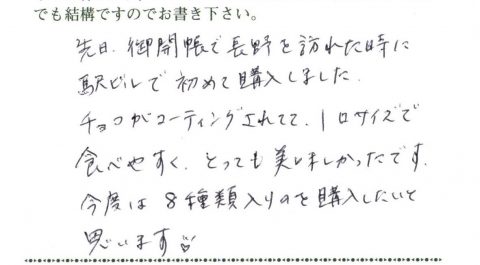 でも結構ですのでお書き下さい。
先日、御開帳で長野を訪れた時に
駅ビルで初めて購入しました。
チョコがコーティングされてて、1口サイズで
食べやすく、とっても美味しかったです。
今度は8種類入りのを購入したいと
思います